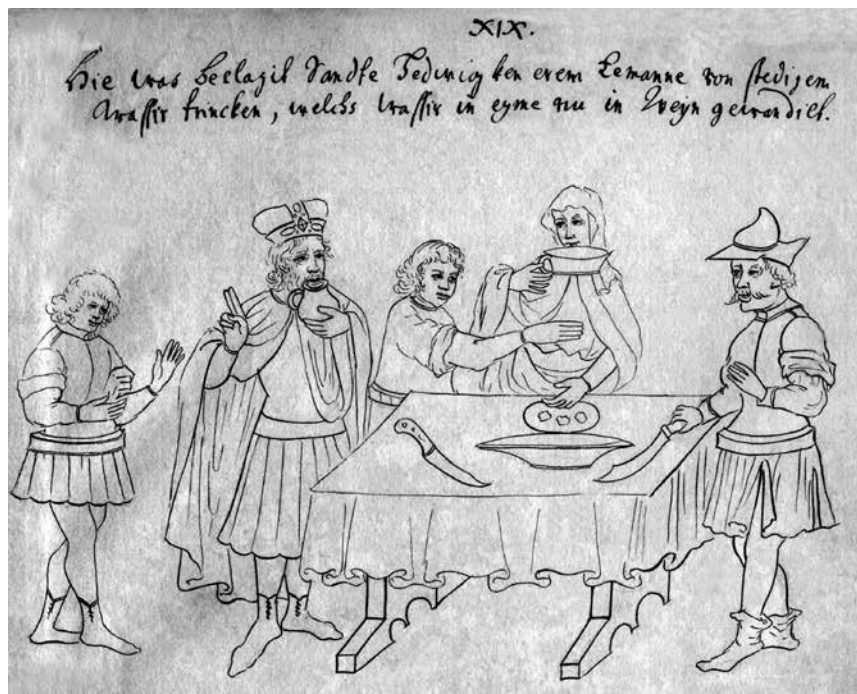 XIX.
Hie was beclagit Sandte Hedwigk ken erem Lemanne von stedigem
Wassir trincken, welchs Wassir in eyme nu in Weyn gewandilt.